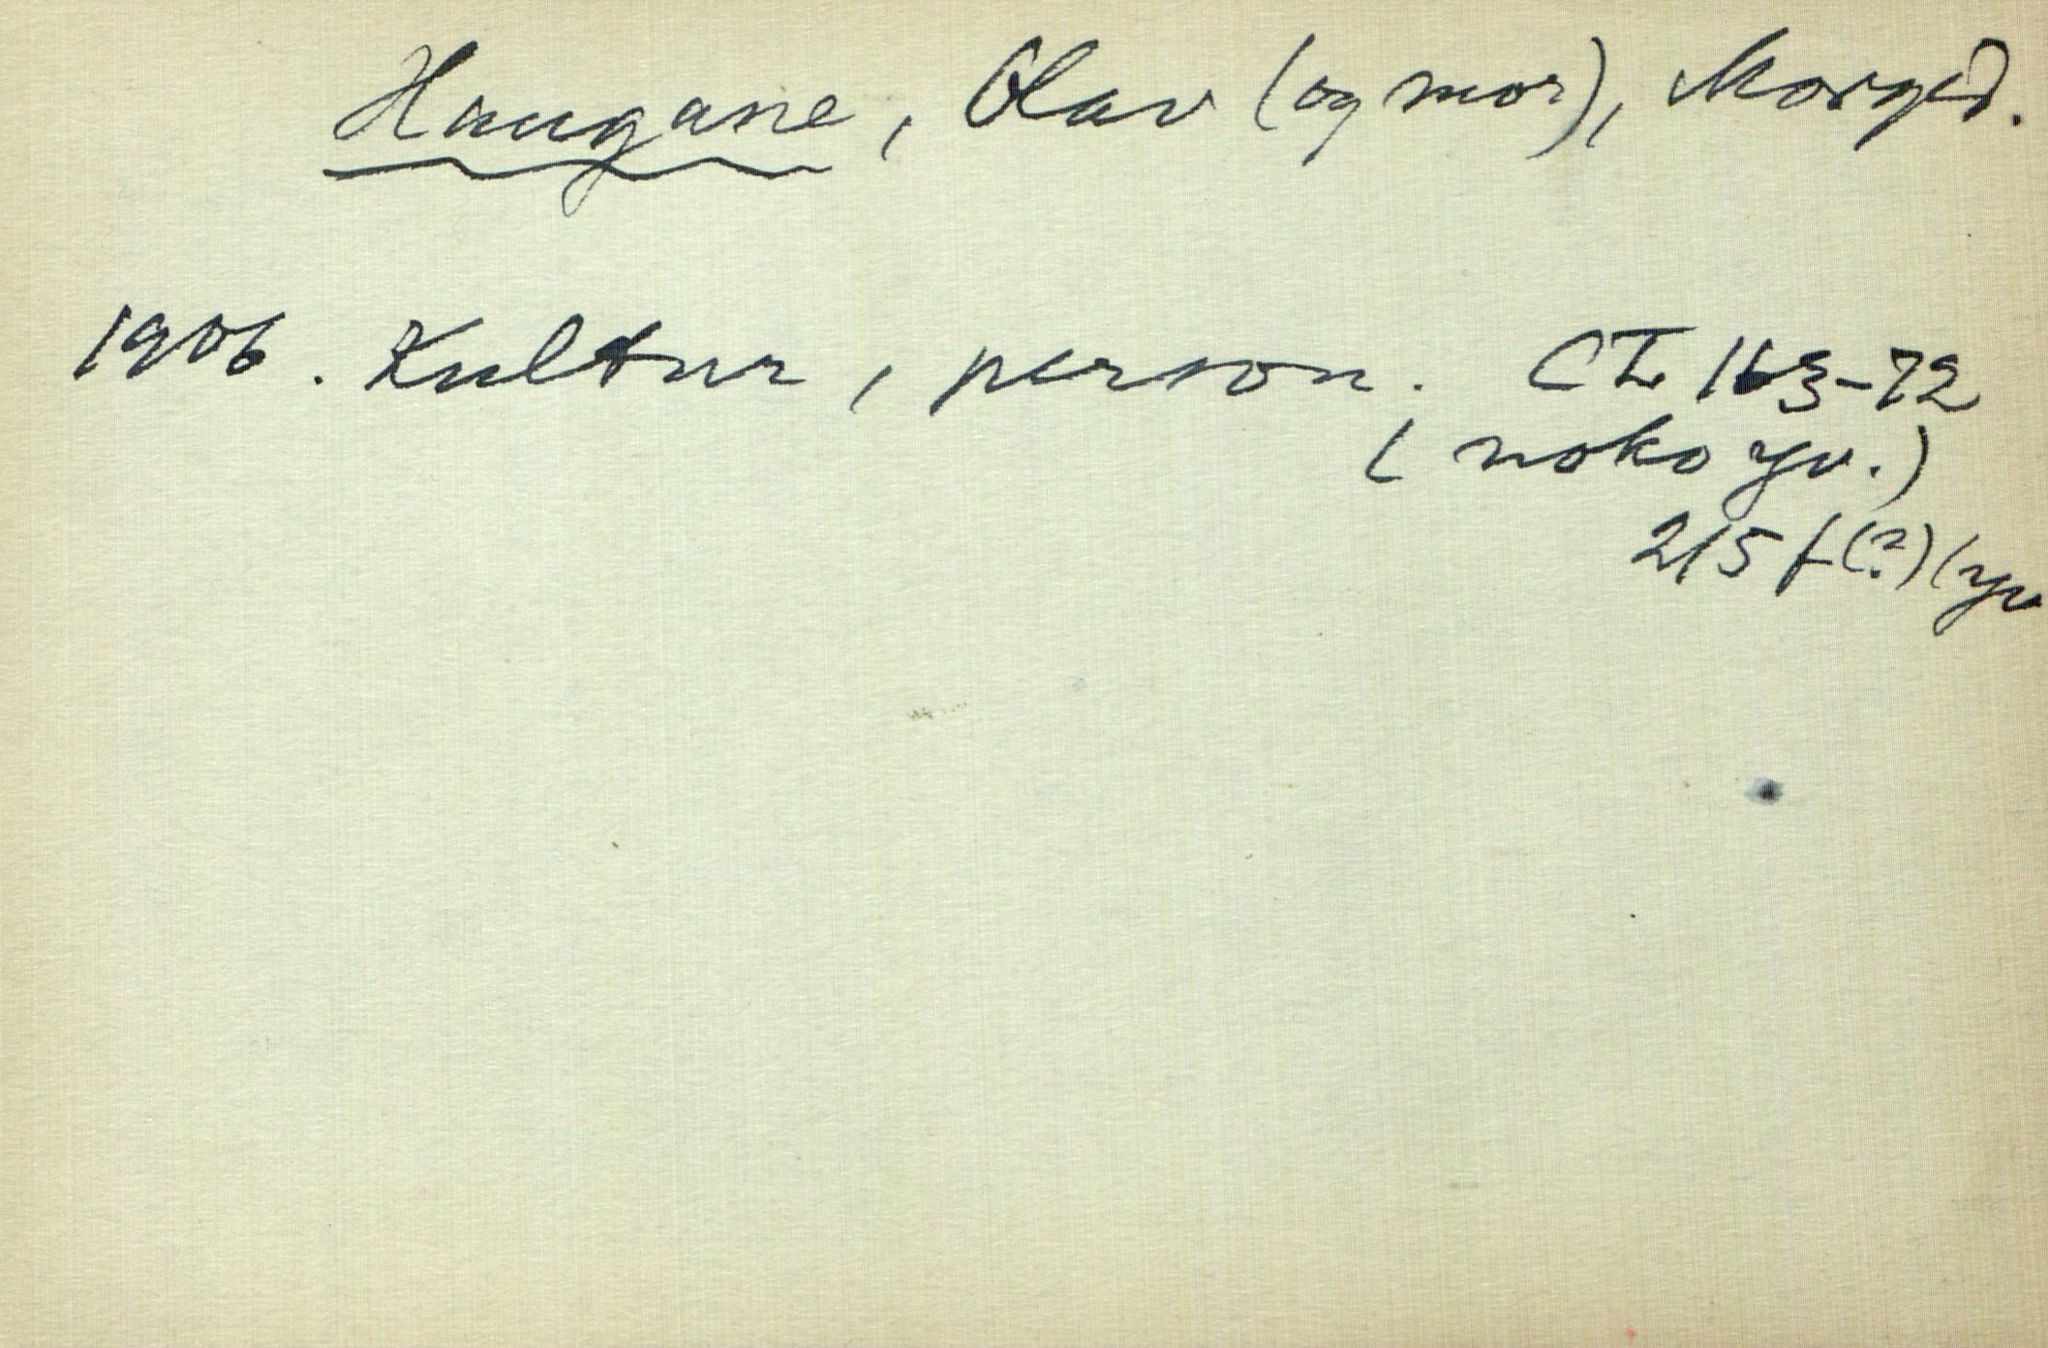 Haugane, Olav (og mor), Morged.
1906. Kultur, person. CI 163-72
(noko yv.)
215 f(?) (yv